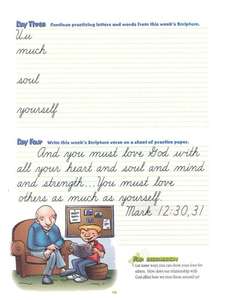 Day Three Continue practicing letters and words from this week's Scripture.
Uu
much
soul
yourself
Day Four Write this week's Scripture verse on a sheet of practice paper.
And you must love God with
all your heart and soul and mind
and strength...You must love
others as much as yourself.
Mark 12:30,31
For Discussion
List some ways you can show your love for
others. How does our relationship with
God affect how we treat those around us?